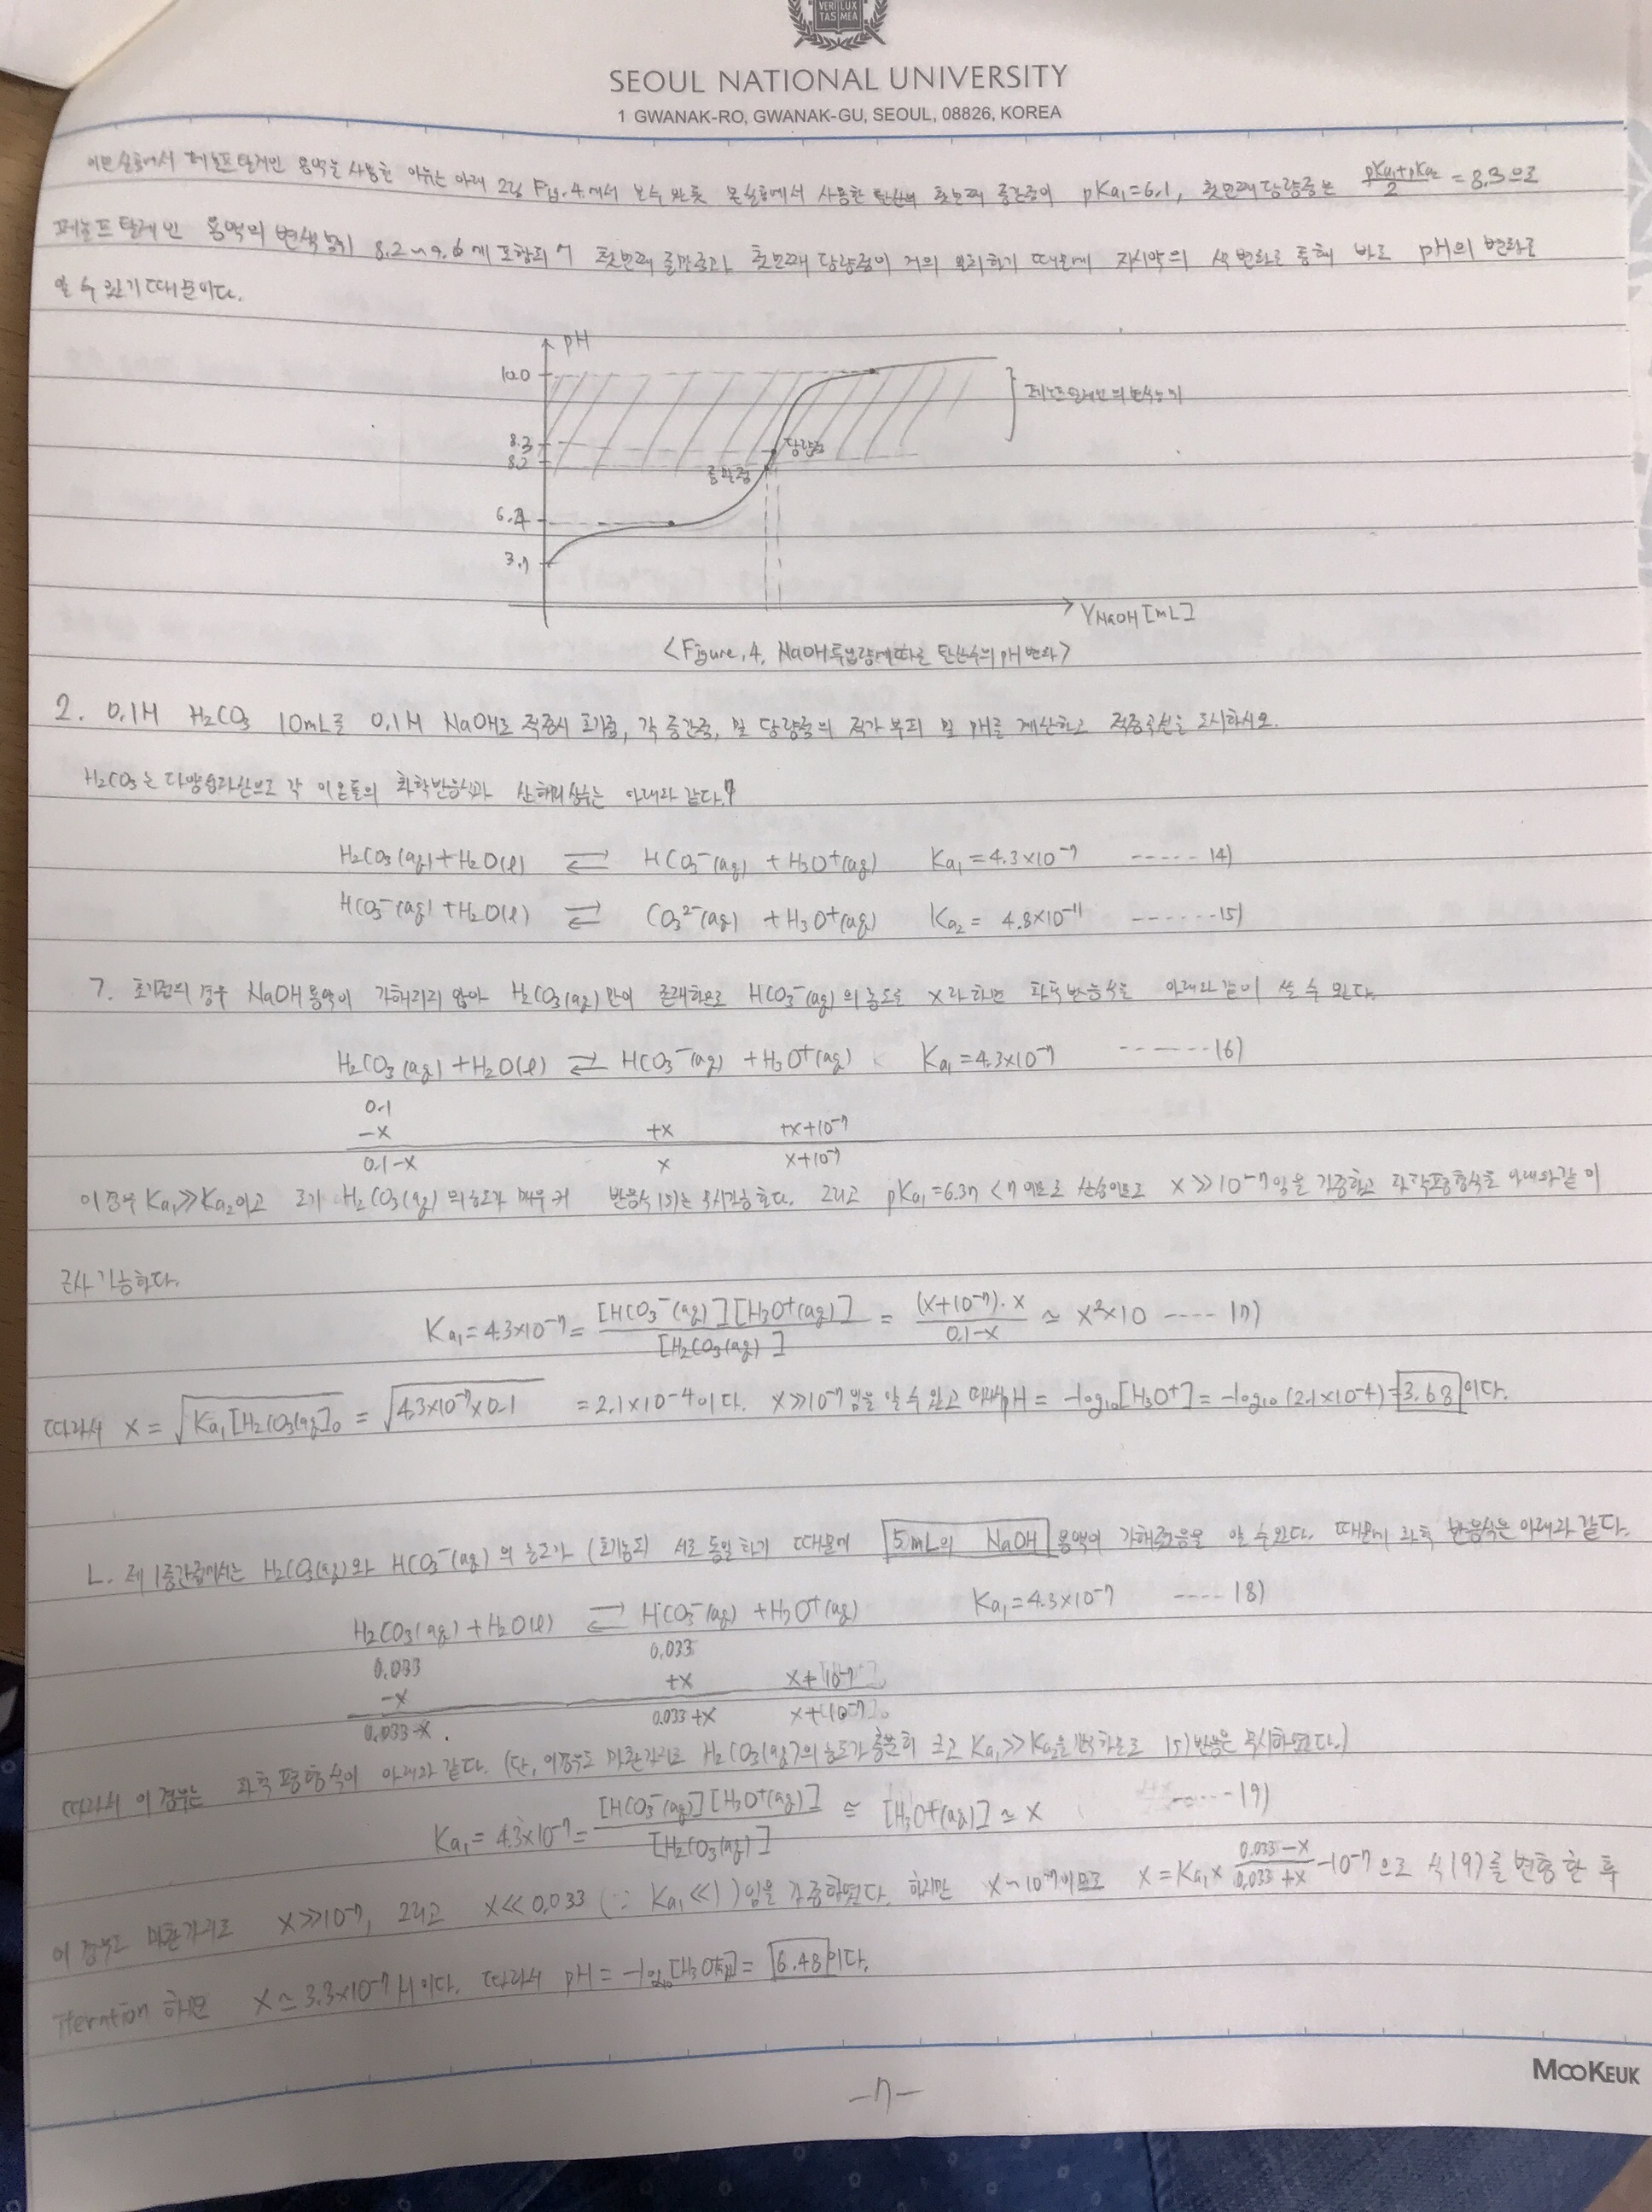 VERI LUX
TAS MEA
SEOUL NATIONAL UNIVERSITY
1 GWANAK-RO, GWANAK-GU, SEOUL, 08826, KOREA
이번 실험에서 페놀프탈레인 용액을 사용한 이유는 아래 그림 Fig.4.에서 볼 수 있듯 본 실험에서 사용한 탄산의 첫번째 중간점이 pKa₁=6.1, 첫번째 당량점은 (pKa₁+pKa₂)/2 = 8.3으로
페놀프탈레인 용액의 변색범위 8.2~9.6에 포함되 첫번째 종말점과 첫번째 당량점이 거의 일치하기 때문에 지시약의 색 변화를 통해 바로 pH의 변화를
알 수 있기 때문이다.
pH
10.0
8.3
8.2
3.7
당량점
종말점
페놀프탈레인의 변색범위
V NaOH [mL]
<Figure.4. NaOH 투입량에 따른 탄산수의 pH 변화>
2. 0.1M H₂CO₃ 10mL를 0.1M NaOH로 적정시 초기점, 각 중간점, 및 당량점의 적가 부피 및 pH를 계산하고 적정곡선을 도시하시오.
H₂CO₃는 다양성자산으로 각 이온들의 화학반응식과 산해리상수는 아래와 같다.
H₂CO₃(aq)+H₂O(l) ⇄ HCO₃⁻(aq) +H₃O⁺(aq) Ka₁=4.3×10⁻⁷ ----- 14)
HCO₃⁻(aq)+H₂O(l) ⇄ CO₃²⁻(aq) +H₃O⁺(aq) Ka₂= 4.8×10⁻¹¹ ------15)
ㄱ. 초기점의 경우 NaOH 용액이 가해지지 않아 H₂CO₃(aq)만이 존재하므로 HCO₃⁻(aq)의 농도를 x라 하면 화학반응식을 아래와 같이 쓸 수 있다.
H₂CO₃(aq)+H₂O(l) ⇄ HCO₃⁻(aq) +H₃O⁺(aq) Ka₁=4.3×10⁻⁷ ------16)
0.1
-x +x +x+10⁻⁷
0.1-x x x+10⁻⁷
이 경우 Ka₁≫Ka₂이고 초기 H₂CO₃(aq)의 농도가 매우 커 반응식 15)는 무시가능하다. 그리고 pKa₁=6.37<7이므로 산성이므로 x≫10⁻⁷임을 가정하고 화학평형식을 아래와 같이
근사 가능하다.
Ka₁=4.3×10⁻⁷= [HCO₃⁻(aq)][H₃O⁺(aq)] / [H₂CO₃(aq)] = (x+10⁻⁷)·x / 0.1-x ≃ x²×10 ---- 17)
따라서 x = √Ka₁[H₂CO₃(aq)]₀ = √4.3×10⁻⁷×0.1 =2.1×10⁻⁴이다. x≫10⁻⁷임을 알 수 있고 따라서 pH = -log₁₀[H₃O⁺]= -log₁₀(2.1×10⁻⁴)=3.68이다.
ㄴ. 제 1중간점에서는 H₂CO₃(aq)와 HCO₃⁻(aq)의 농도가 (초기농도) 서로 동일하기 때문에 5mL의 NaOH 용액이 가해졌음을 알 수 있다. 때문에 화학 반응식은 아래와 같다.
H₂CO₃(aq)+H₂O(l) ⇄ HCO₃⁻(aq) +H₃O⁺(aq) Ka₁=4.3×10⁻⁷ ---- 18)
0.033 0.033
-x +x x+10⁻⁷
0.033-x. 0.033+x x+10⁻⁷
따라서 이 경우는 화학 평형식이 아래와 같다. (단, 이경우도 마찬가지로 H₂CO₃(aq)의 농도가 충분히 크고 Ka₁≫Ka₂을 만족하므로 15) 반응은 무시하였다.)
Ka₁= 4.3×10⁻⁷= [HCO₃⁻(aq)][H₃O⁺(aq)] / [H₂CO₃(aq)] ≃ [H₃O⁺(aq)] ≃ x -----19)
이 경우도 마찬가지로 x≫10⁻⁷, 그리고 x≪0.033 (∵ Ka₁≪1)임을 가정하였다. 하지만 x~10⁻⁷이므로 x=Ka₁× (0.033-x)/(0.033+x) -10⁻⁷으로 식 19)를 변형한 후
iteration 하면 x≃3.3×10⁻⁷M이다. 따라서 pH = -log₁₀[H₃O⁺]= 6.48이다.
-7-
MOOKEUK